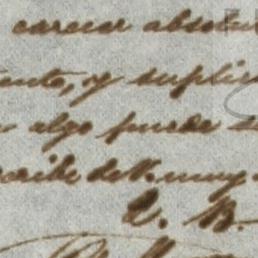 carecer absolu
ento, y suplir
algo puede s
cribe de V. muy
Q. B.